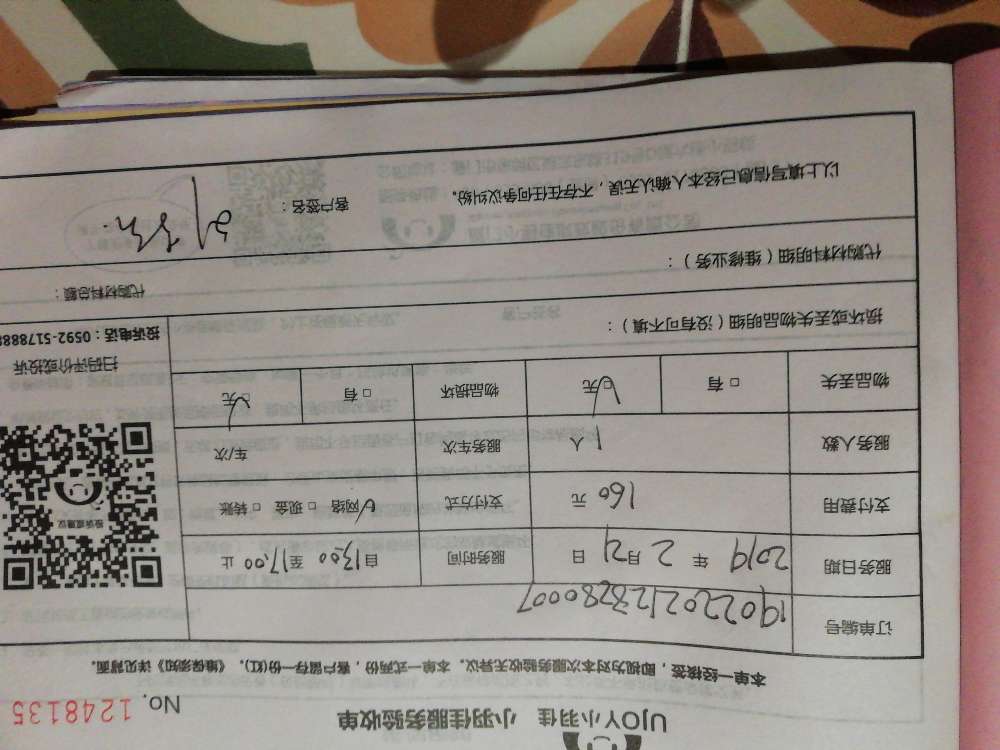 UJOY小羽佳 小羽佳服务验收单
No. 1248135
本单一经接签，即视为对本次服务验收无异议。本单一式两份，客户留存一份(红)。《雇保须知》详见背面。
订单编号 1902202128280007
服务日期 2019 年 2 月 21 日 服务时间 自13:00 至17:00 止
支付费用 160 元 支付方式 ✓网络 □ 现金 □ 转账
服务人数 1 人 服务车次 车/次
物品丢失 □ 有 ☑无 物品损坏 □ 有 ☑无
损坏或丢失物品明细（没有可不填）：
代购材料明细（维修业务）：
代购材料总额：
以上填写信息已经本人确认无误，不存在任何争议纠纷。
客户签名：
投诉或建议
扫码评价或投诉
投诉电话：0592-5178888